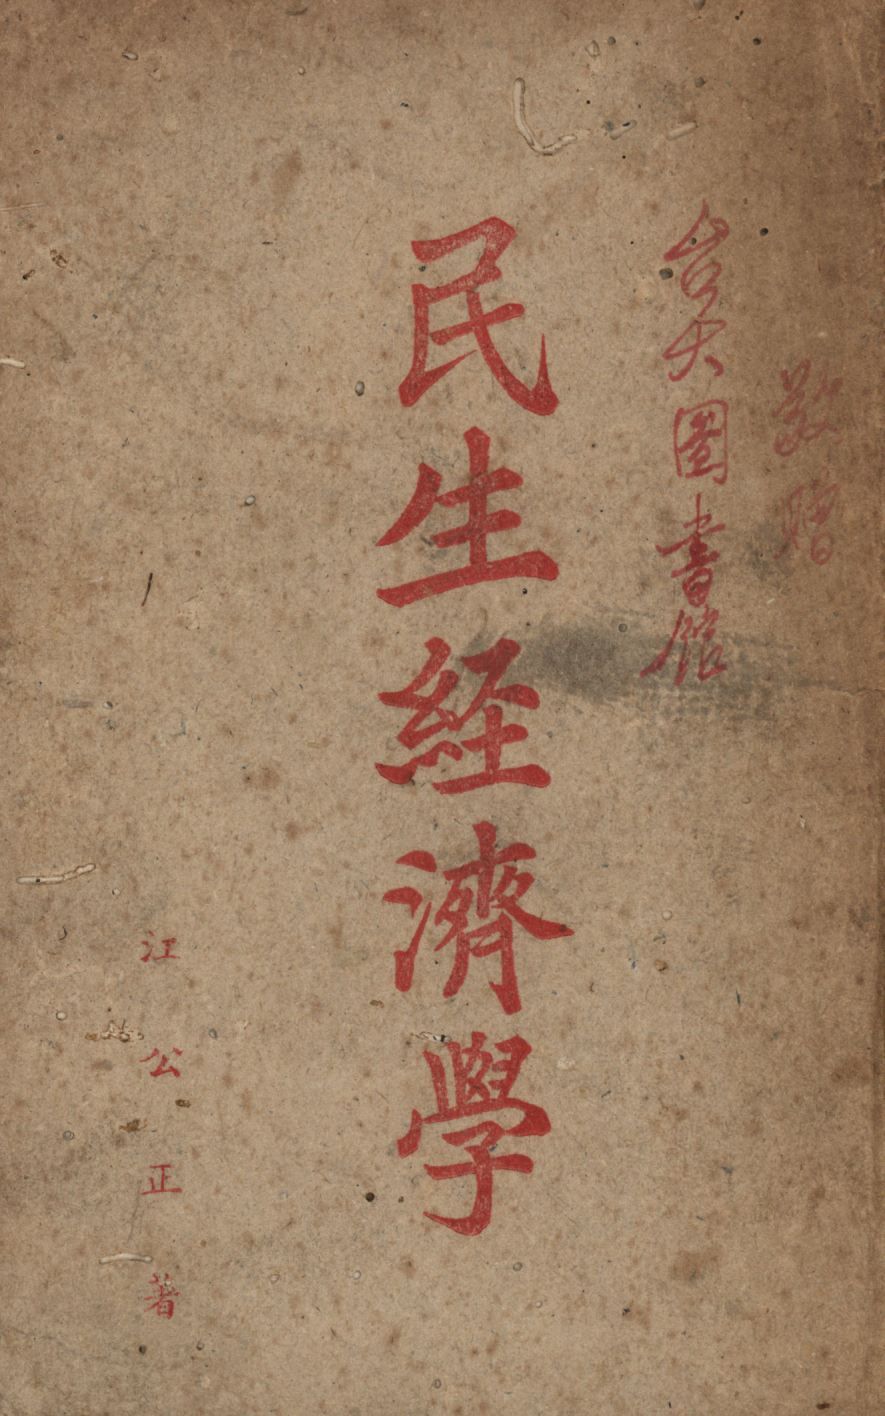 敬贈
台大圖書館
民生経濟學
江公正著